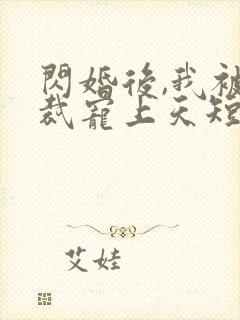 閃婚後,我被
裁寵上天短
艾娃